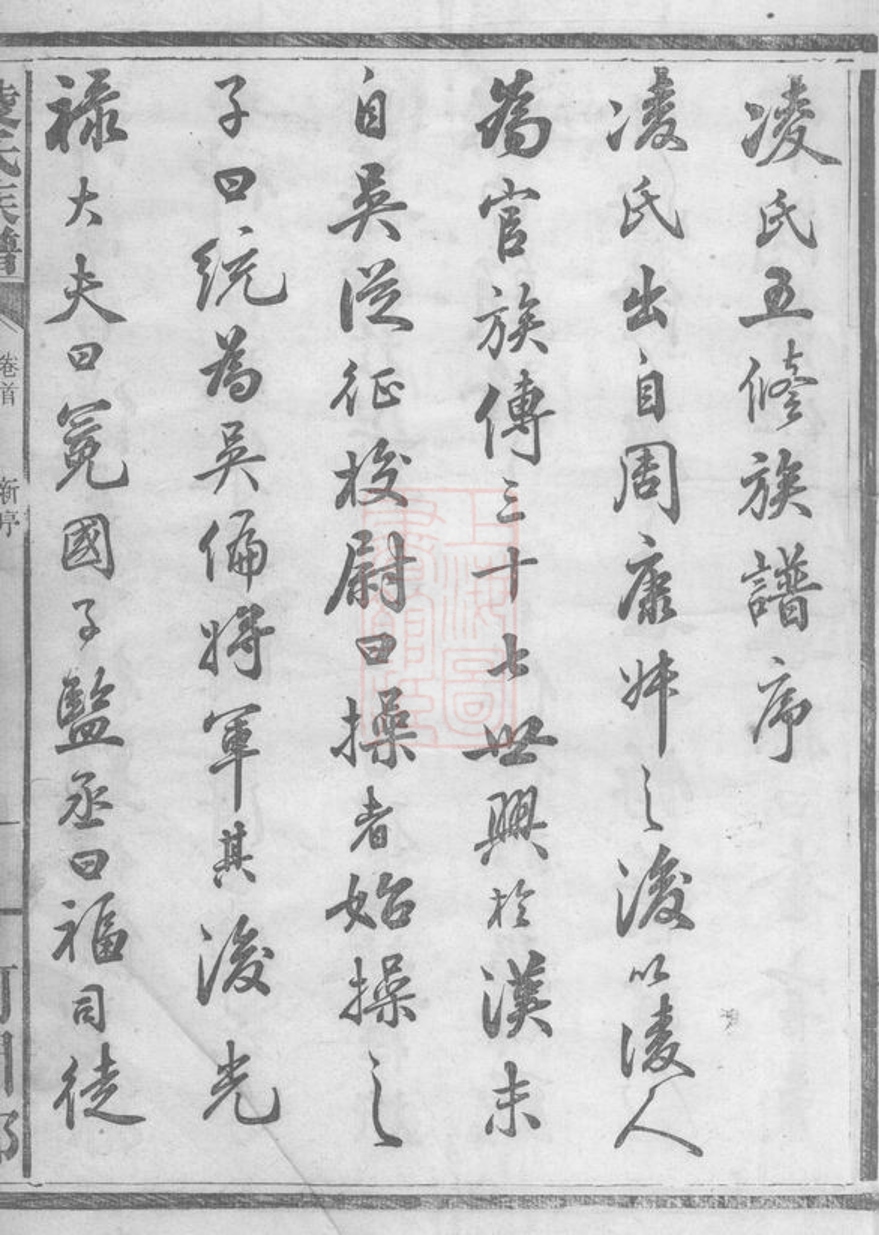 凌氏五修族譜序
凌氏出自周康叔之後以凌人
為官族傳三十七世興於漢末
自吳從征校尉曰操者始操之
子曰統為吳偏將軍其後光
祿大夫曰冕國子監丞曰福司徒
凌氏族譜
卷首
新序
河間郡
上海圖書館藏